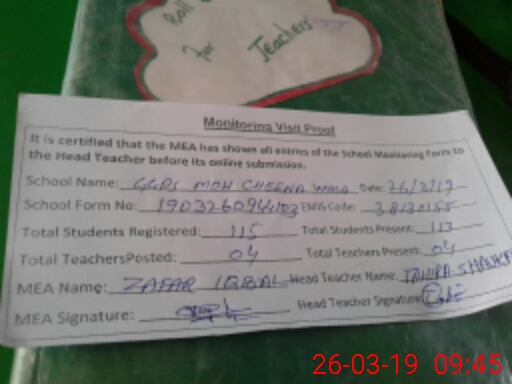 Roll
for
Teachers
Monitoring Visit Proof
It is certified that the MEA has shown all entries of the School Monitoring Form to
the Head Teacher before its online submission.
School Name: GGPS MOH CHEENA WALA Date: 26/3/19
School Form No: EMIS Code: 38130155
Total Students Registered: 115 Total Students Present: 113
Total TeachersPosted: 04 Total Teachers Present: 04
MEA Name: ZAFAR IQBAL Head Teacher Name: TAHIRA
MEA Signature: Head Teacher Signature:
26-03-19 09:45